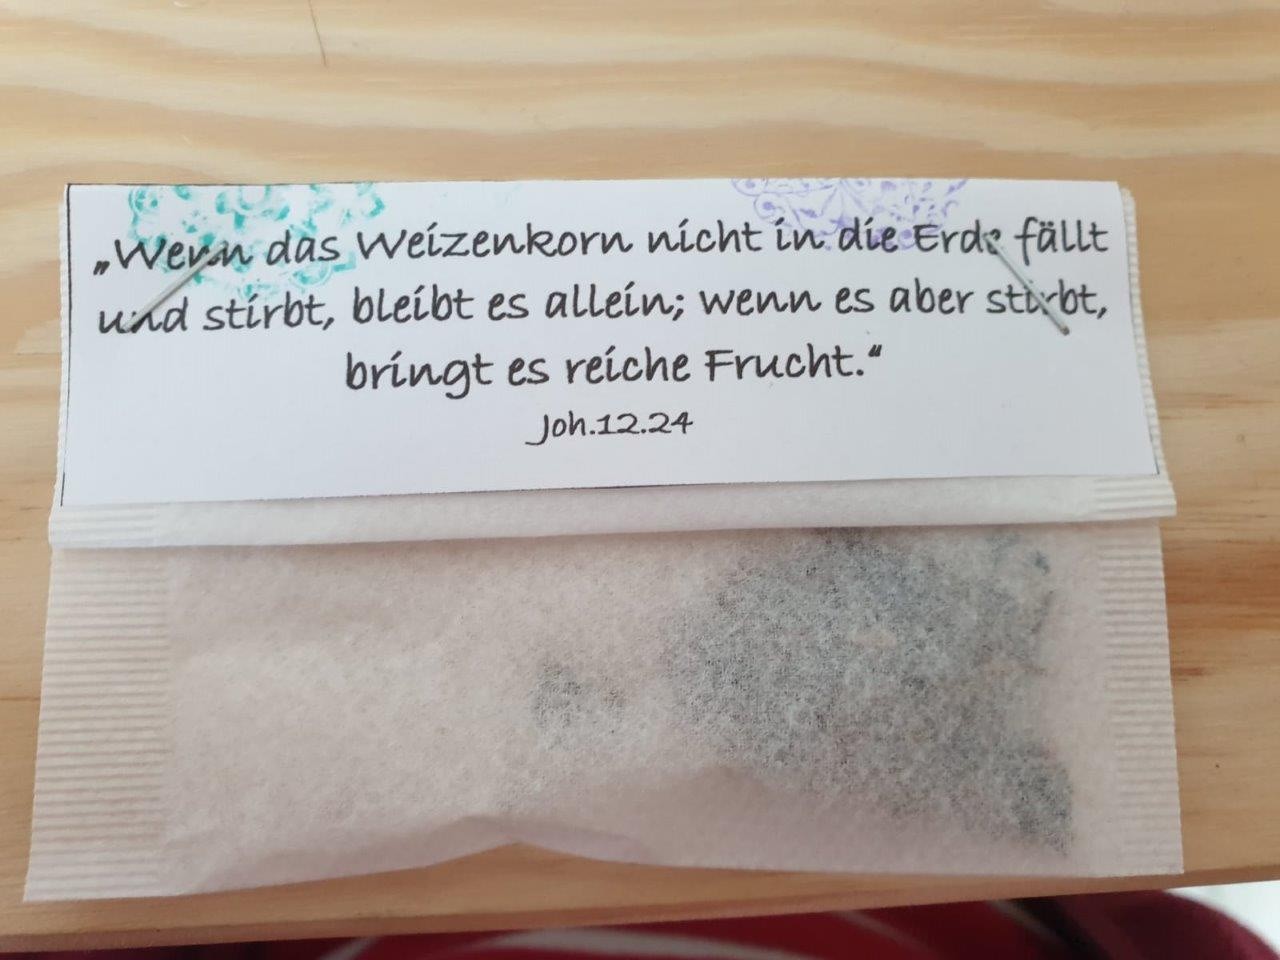 „Wenn das Weizenkorn nicht in die Erde fällt
und stirbt, bleibt es allein; wenn es aber stirbt,
bringt es reiche Frucht.“
Joh.12.24